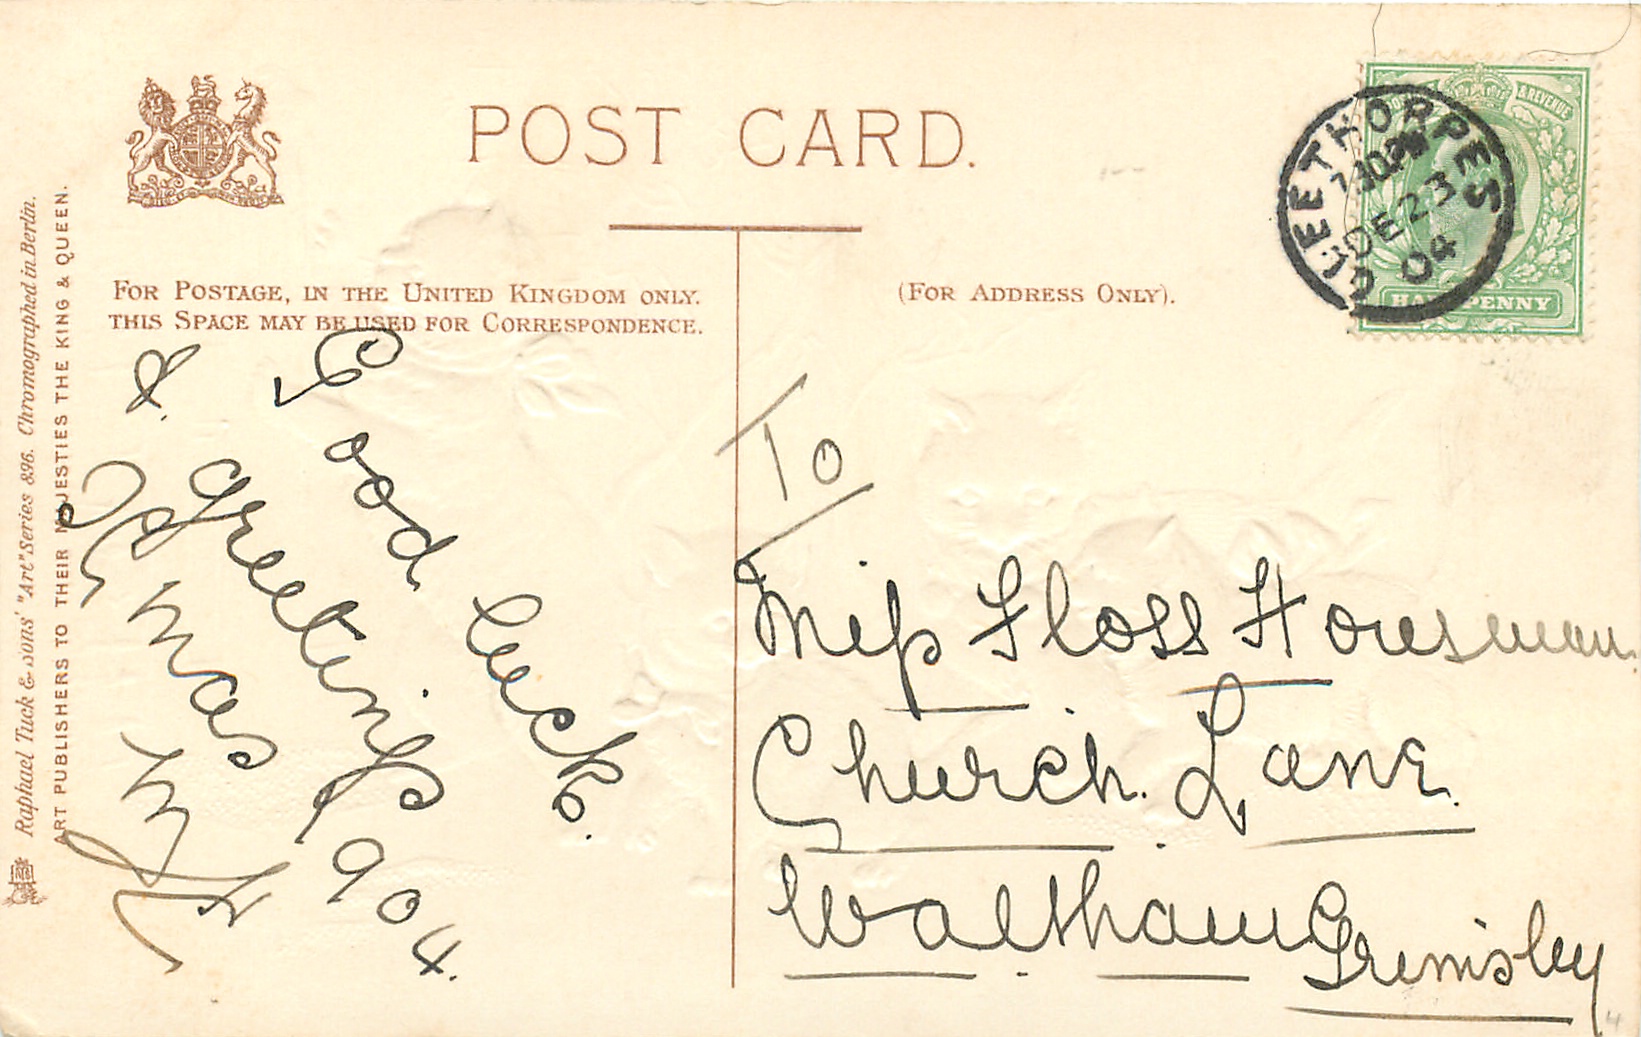 POST CARD.
FOR POSTAGE, IN THE UNITED KINGDOM ONLY.
THIS SPACE MAY BE USED FOR CORRESPONDENCE.
(FOR ADDRESS ONLY).
& REVENUE
HALFPENNY
CLEETHORPES
7.30PM
DE 23
04
Raphael Tuck & Sons' "Art" Series 896. Chromographed in Berlin.
ART PUBLISHERS TO THEIR MAJESTIES THE KING & QUEEN.
Good luck.
& greetings
Xmas 1904.
To
Miss Floss Houseman.
Church. Lane.
Waltham
Grimsby
4